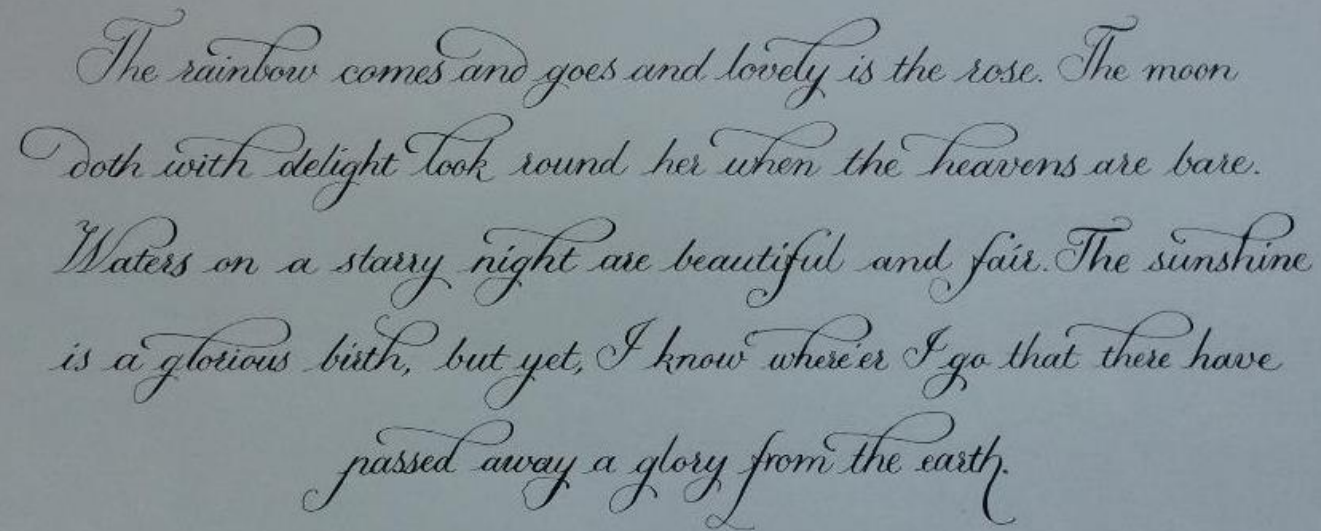 The rainbow comes and goes and lovely is the rose. The moon
doth with delight look round her when the heavens are bare.
Waters on a starry night are beautiful and fair. The sunshine
is a glorious birth, but yet, I know where'er I go that there have
passed away a glory from the earth.